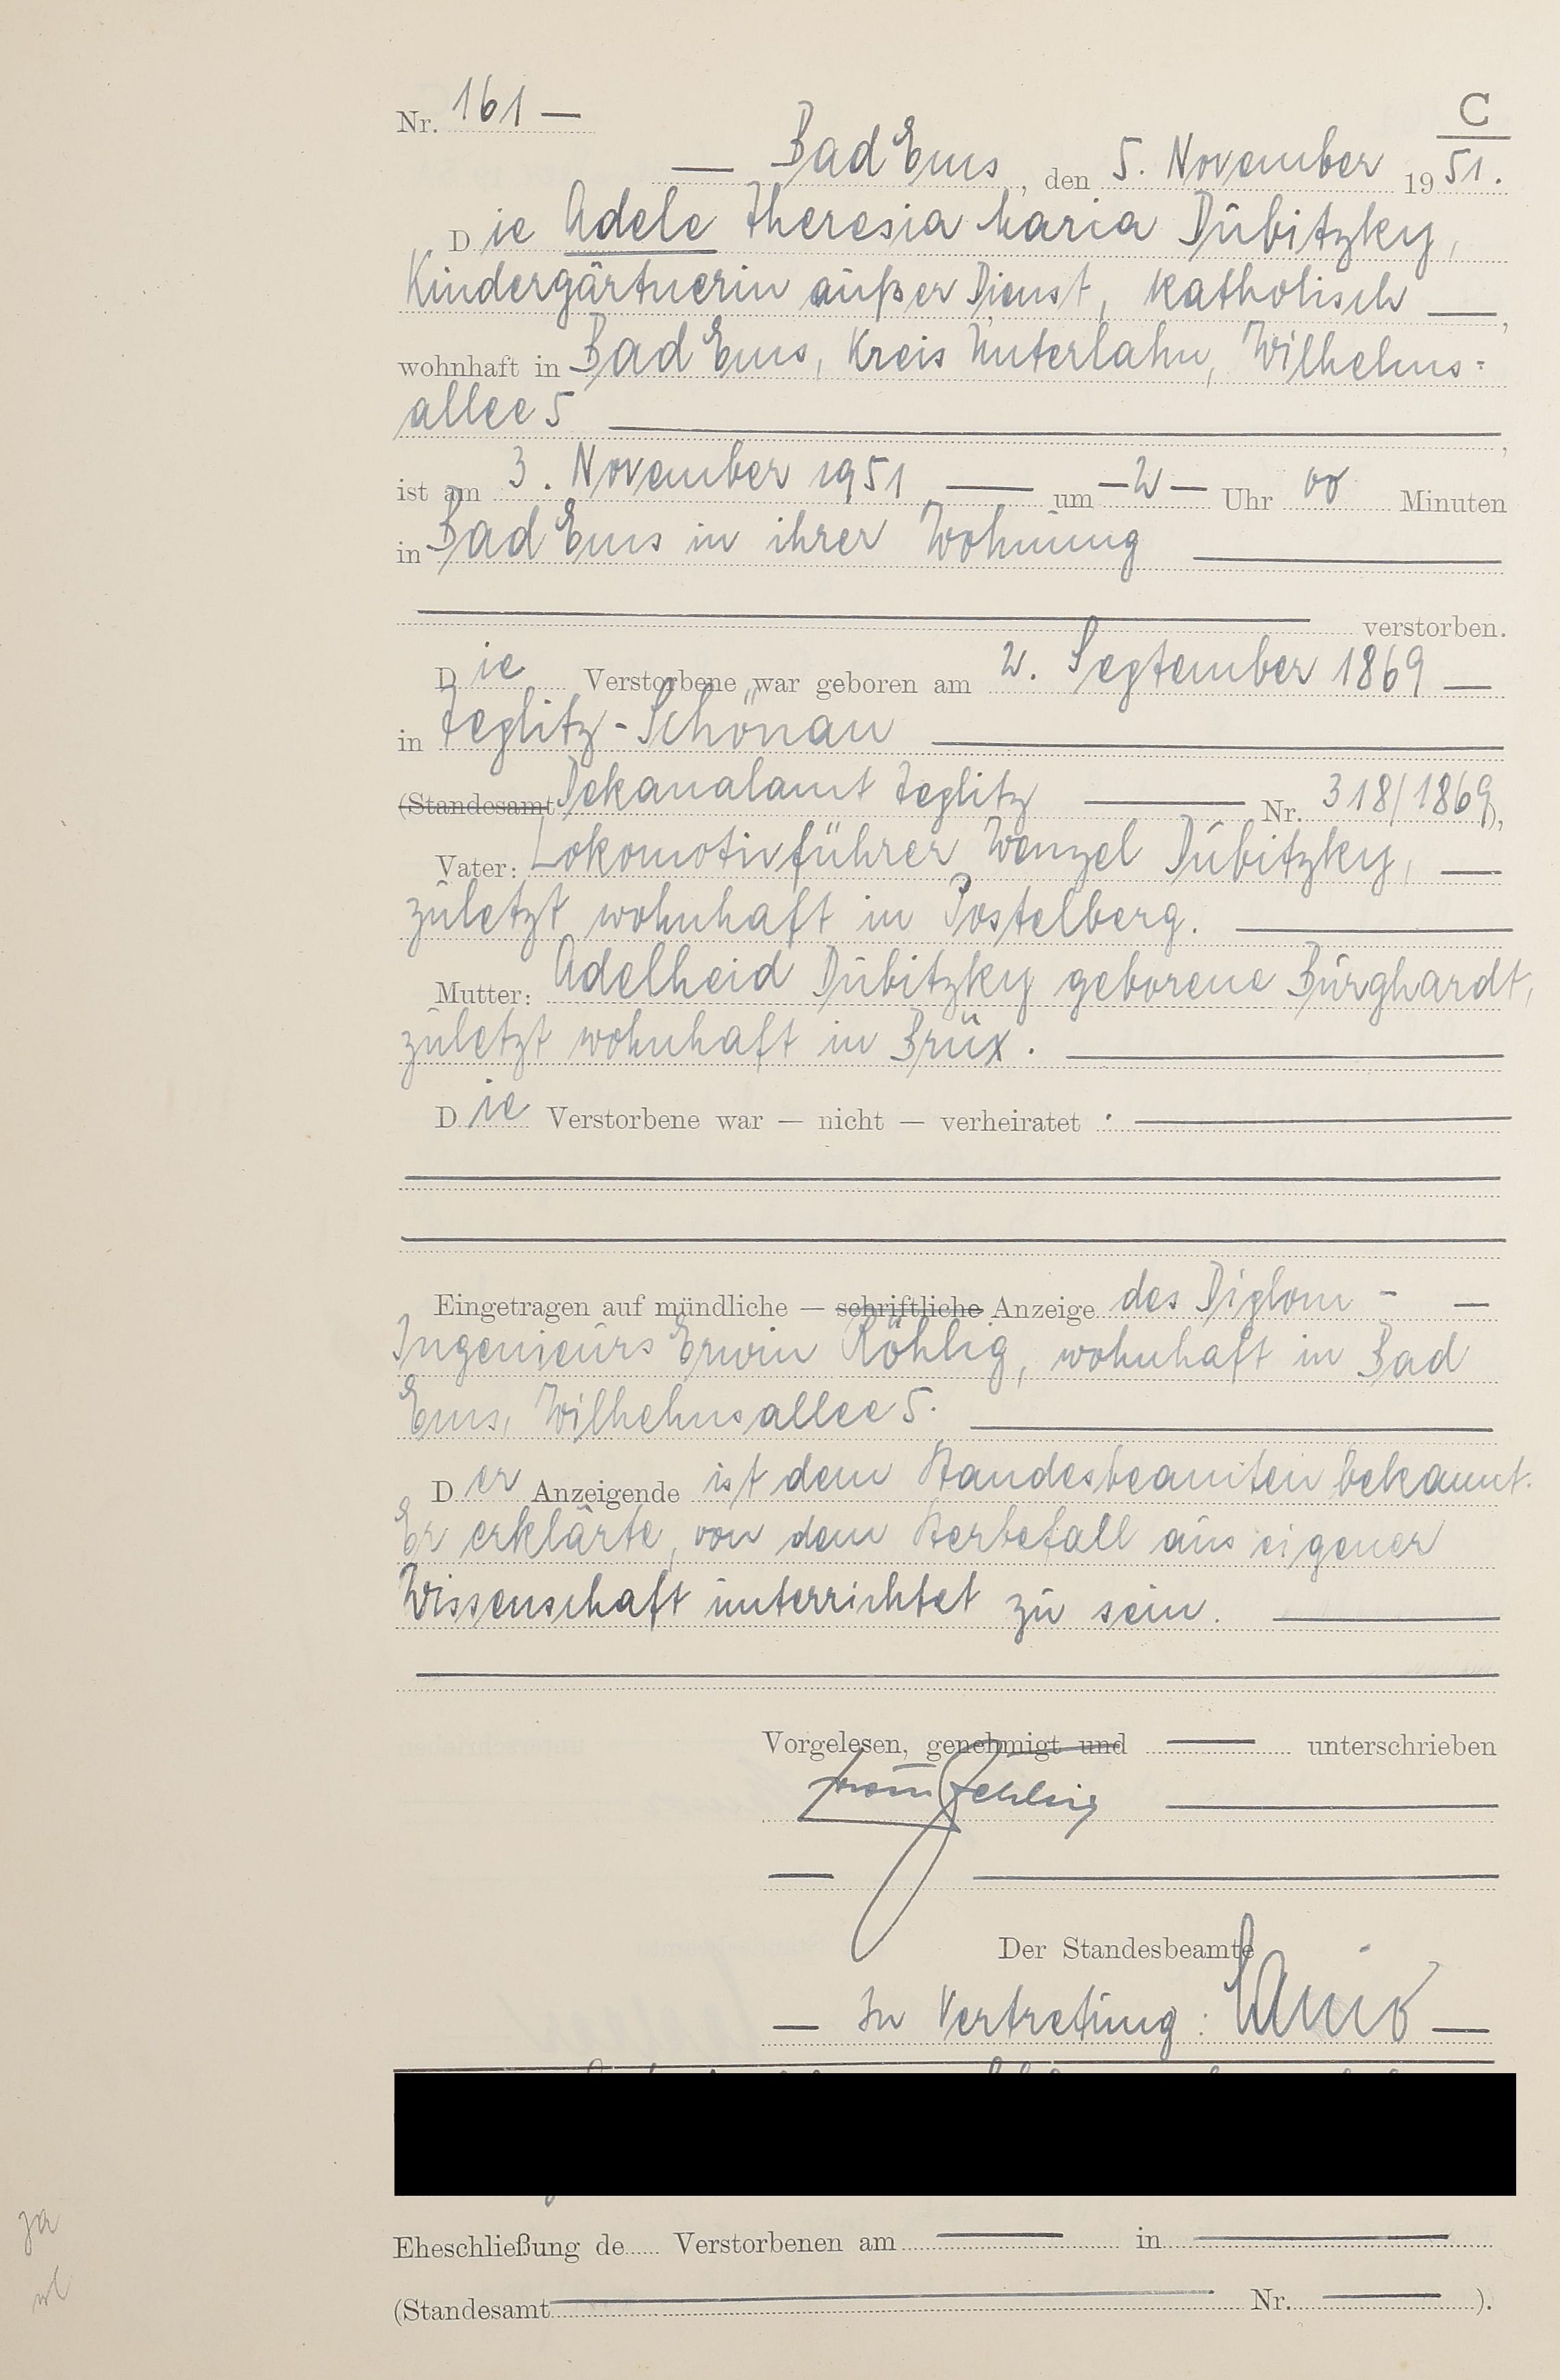 C
Nr. 161 —
— Bad Ems, den 5. November 1951.
Die Adele Theresia Maria Dubitzky,
Kindergärtnerin außer Dienst, katholisch —,
wohnhaft in Bad Ems, Kreis Unterlahn, Wilhelms=
allee 5 —,
ist am 3. November 1951 — um — 2 — Uhr 00 Minuten
in Bad Ems in ihrer Wohnung —
— verstorben.
Die Verstorbene war geboren am 2. September 1869 —
in Teplitz-Schönau —
(Standesamt Dekanalamt Teplitz — Nr. 318/1869),
Vater: Lokomotivführer Wenzel Dubitzky, —
zuletzt wohnhaft in Postelberg. —
Mutter: Adelheid Dubitzky geborene Burghardt,
zuletzt wohnhaft in Brüx. —
Die Verstorbene war — nicht — verheiratet. —
Eingetragen auf mündliche — schriftliche Anzeige des Diplom- —
Ingenieurs Erwin Röhlig, wohnhaft in Bad
Ems, Wilhelmsallee 5. —
Der Anzeigende ist dem Standesbeamten bekannt.
Er erklärte, von dem Sterbefall aus eigener
Wissenschaft unterrichtet zu sein. —
Vorgelesen, genehmigt und — unterschrieben
Der Standesbeamte
— In Vertretung: —
Eheschließung de Verstorbenen am — in —
(Standesamt — Nr. — ).
ja